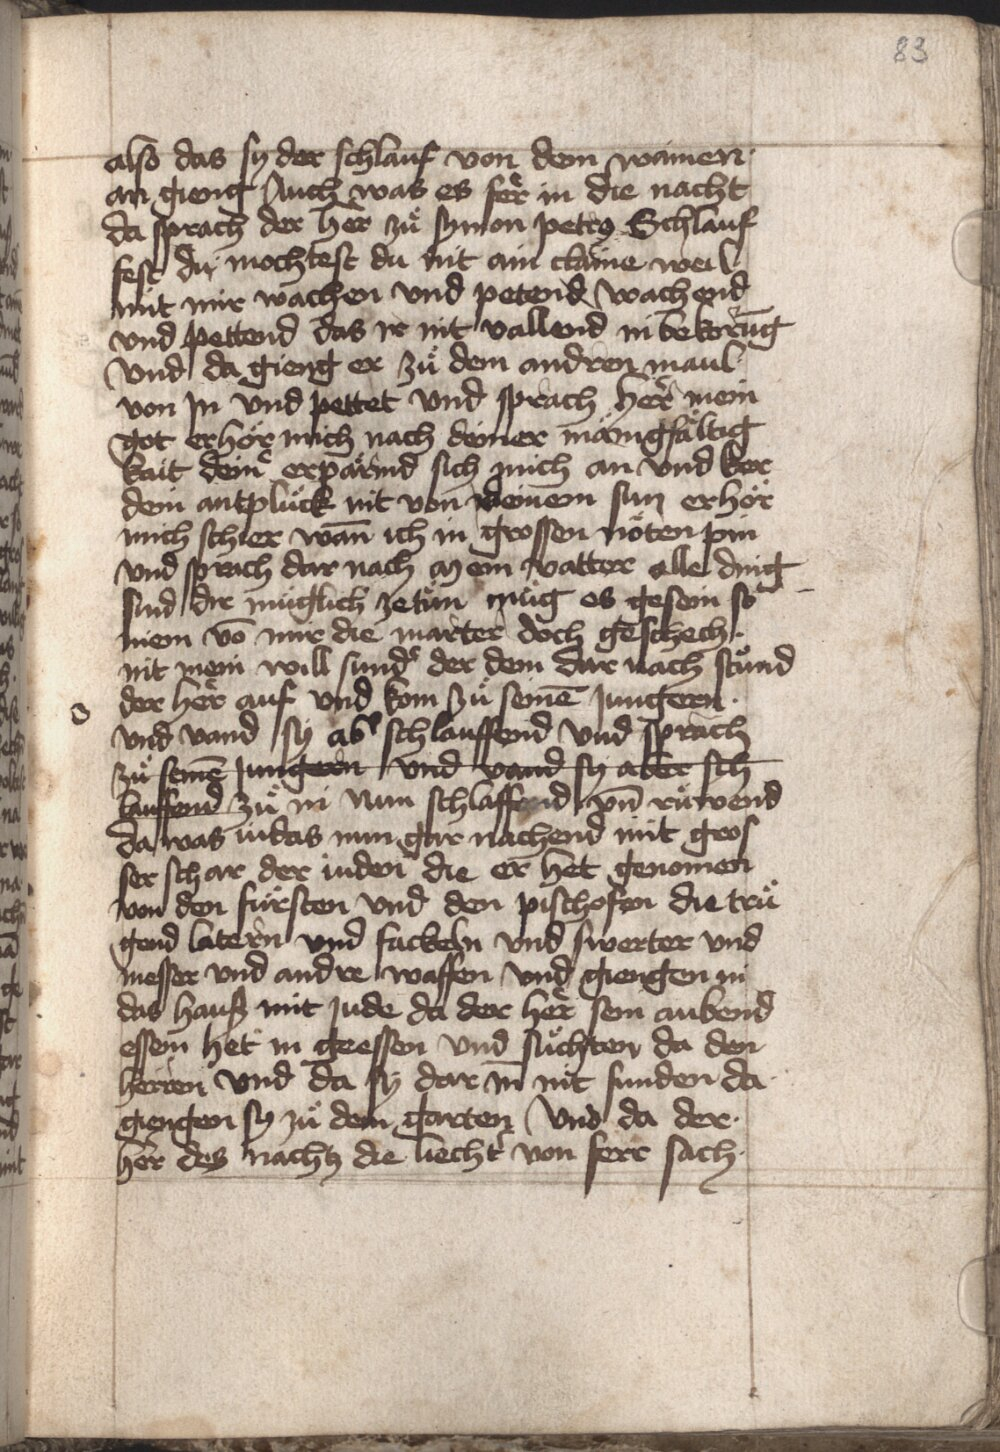 83
also das sy der schlauf von dem wainen
an gieng Auch was es fer in die nacht
da sprach der her zů symon petro Schlauf
fest du mochtest du nit ain claine weil
mit mir wachen vnd petend wachend
vnd pettend das ir nit vallend in bekorūg
Vnd da gieng er zů dem andren maul
von In vnd pettet vnd sprach her mein
got erhör mich nach deiner manigfältig
kait deinr erpärmd sich mich an vnd ker
dein antplück nit von deinem sun erhör
mich schier wan̄ ich in grossen nöten pin
vnd sprach dar nach mein vatter alle ding
sind dir müglich zetůn můg es gesein so
niem vō mir die marter doch geschech
nit mein will sundr der dein dar nach stůnd
der her auf vnd kom zů seinē Jungern
vnd vand sy abr schlauffend vnd sprach
zů seinē Jungern vnd vand sy aber sch
lauffend zů in Nun schlaffend vn̄ růwend
da was iudas nun gar nachend mit gros
ser schar der iuden die er het genomen
von den fürsten vnd den pischofen die trů
gend latern vnd fackeln vnd swerter vnd
messer vnd andre waffen vnd giengen in
das hauß mit Jude da der her sein aubend
essen het in geessen vnd sůchten da den
herren vnd da sy dar in nit funden da
giengen sy zů dem garten Vnd da der
her des nachtz die liecht von ferr sach